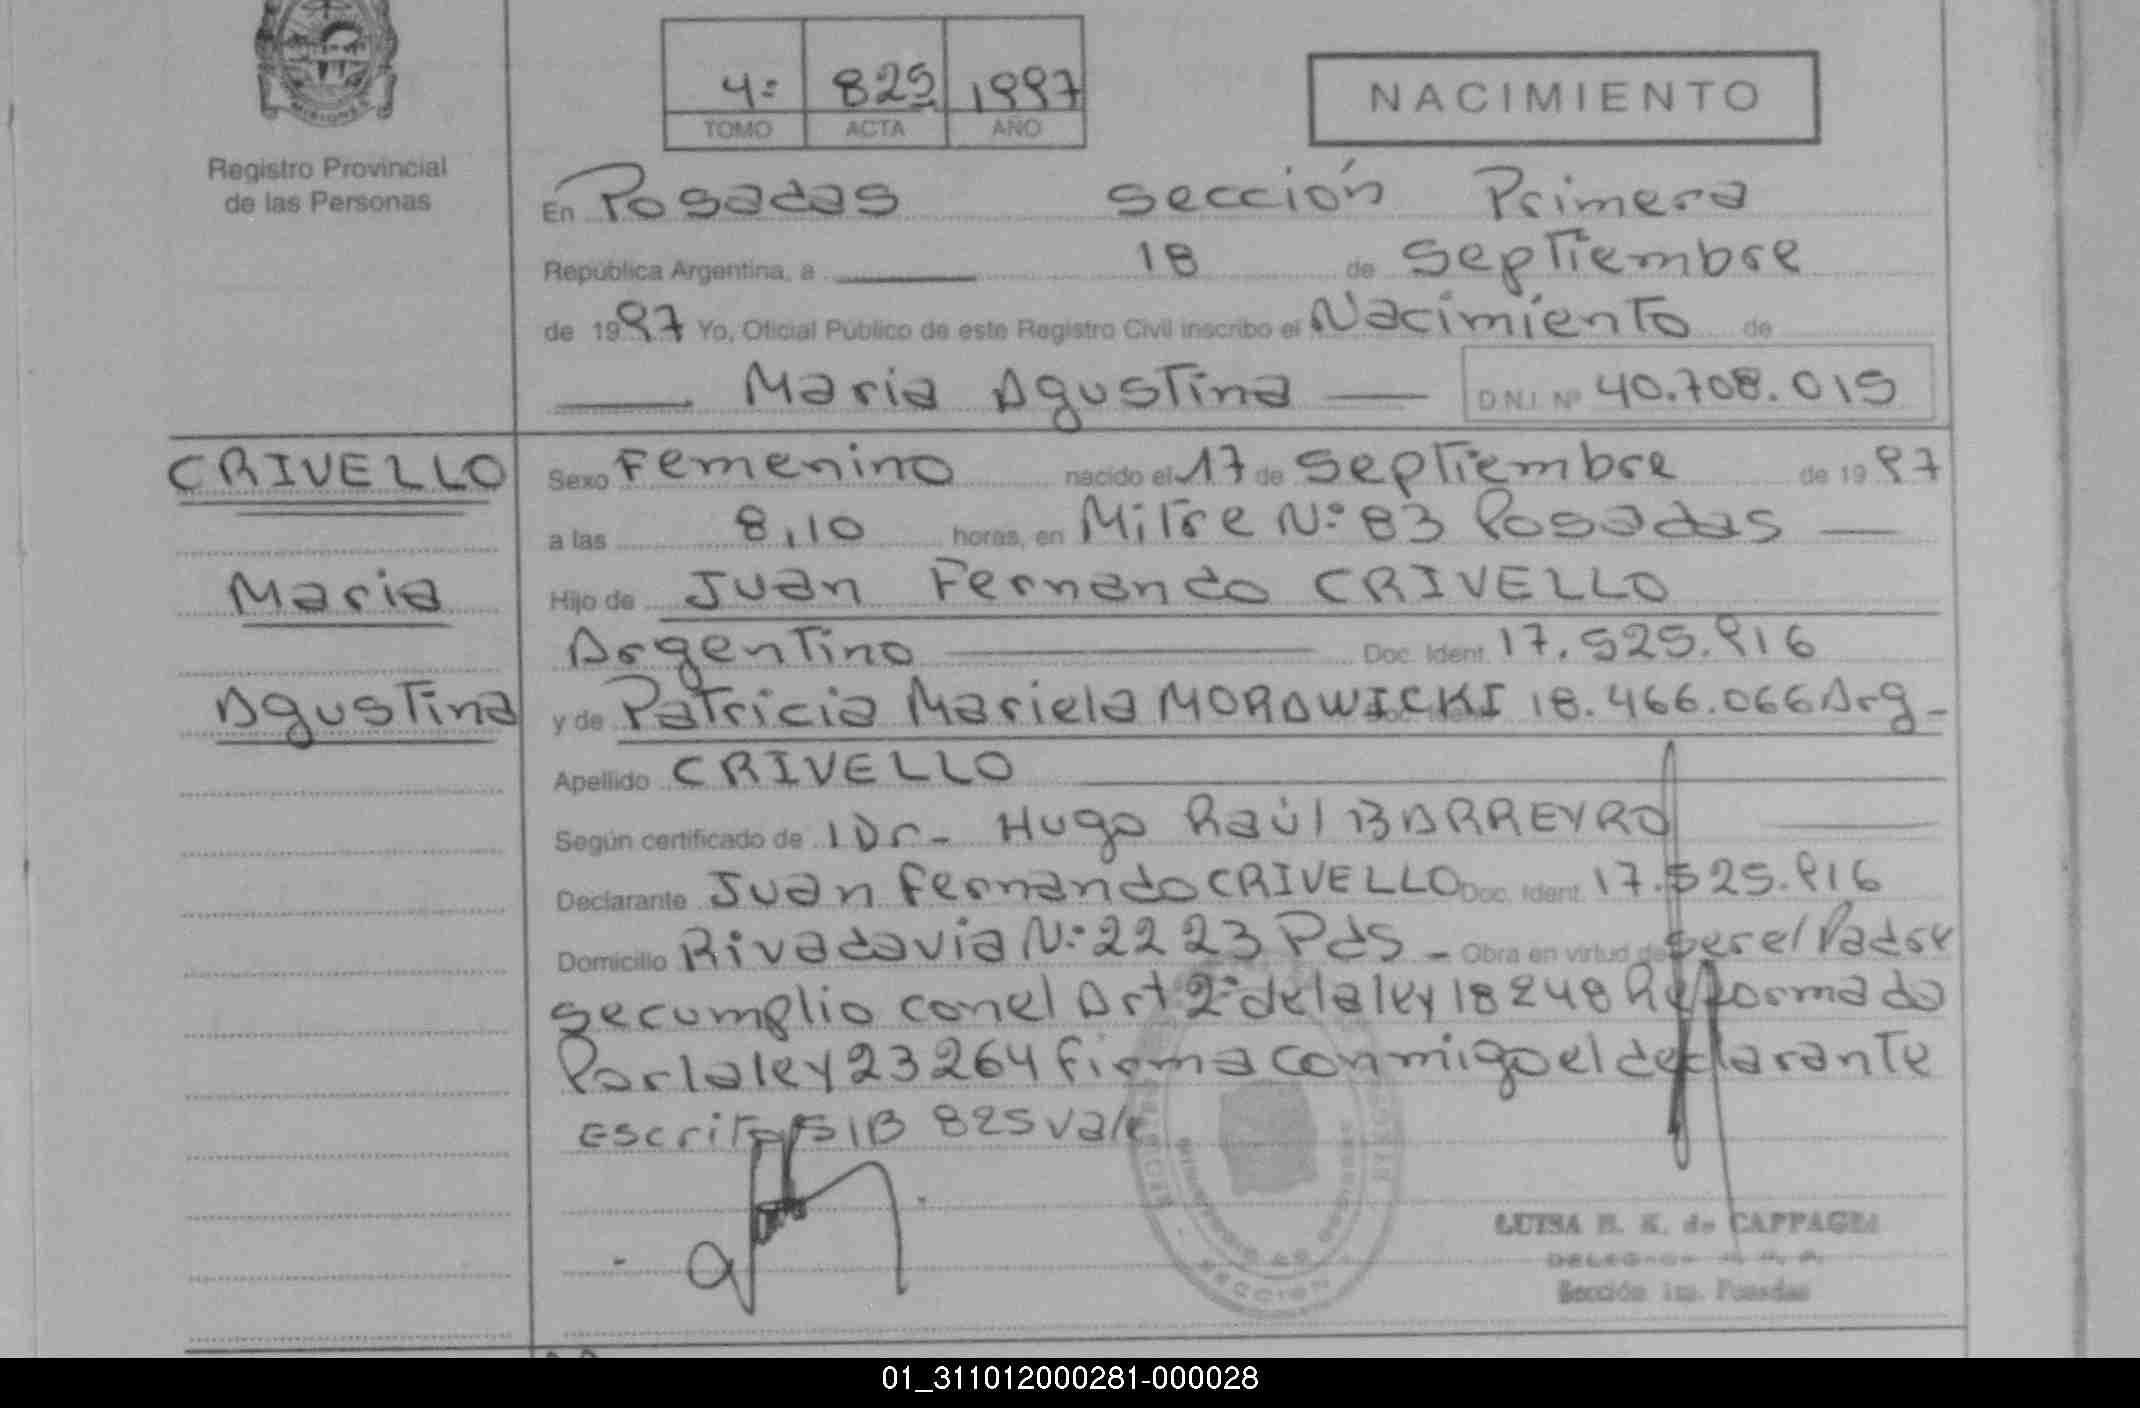 MISIONES
Registro Provincial
de las Personas
4º 825 1997
TOMO ACTA AÑO
NACIMIENTO
En Posadas sección Primera
República Argentina, a 18 de septiembre
de 1997 Yo, Oficial Público de este Registro Civil inscribo el Nacimiento de
Maria Agustina D.N.I. Nº 40.708.015
CRIVELLO
Maria
Agustina
Sexo Femenino nacido el 17 de septiembre de 1997
a las 8,10 horas, en Mitre Nº 83 Posadas
Hijo de Juan Fernando CRIVELLO
Argentino Doc. Ident. 17.525.916
y de Patricia Mariela MORAWICKI 18.466.066 Arg-
Apellido CRIVELLO
Según certificado de Dr- Hugo Raúl BARREYRO
Declarante Juan Fernando CRIVELLO Doc. Ident. 17.525.916
Domicilio Rivadavia Nº 2223 Pds - Obra en virtud de ser el Padre
se cumplio con el Art 2º de la ley 18248 Reformado
Por la ley 23264 firma conmigo el declarante
Escrito S/B 825 vale
LUISA H. K. de CAPPAGLI
Sección 1ra. Posadas
SECCION
01_311012000281-000028